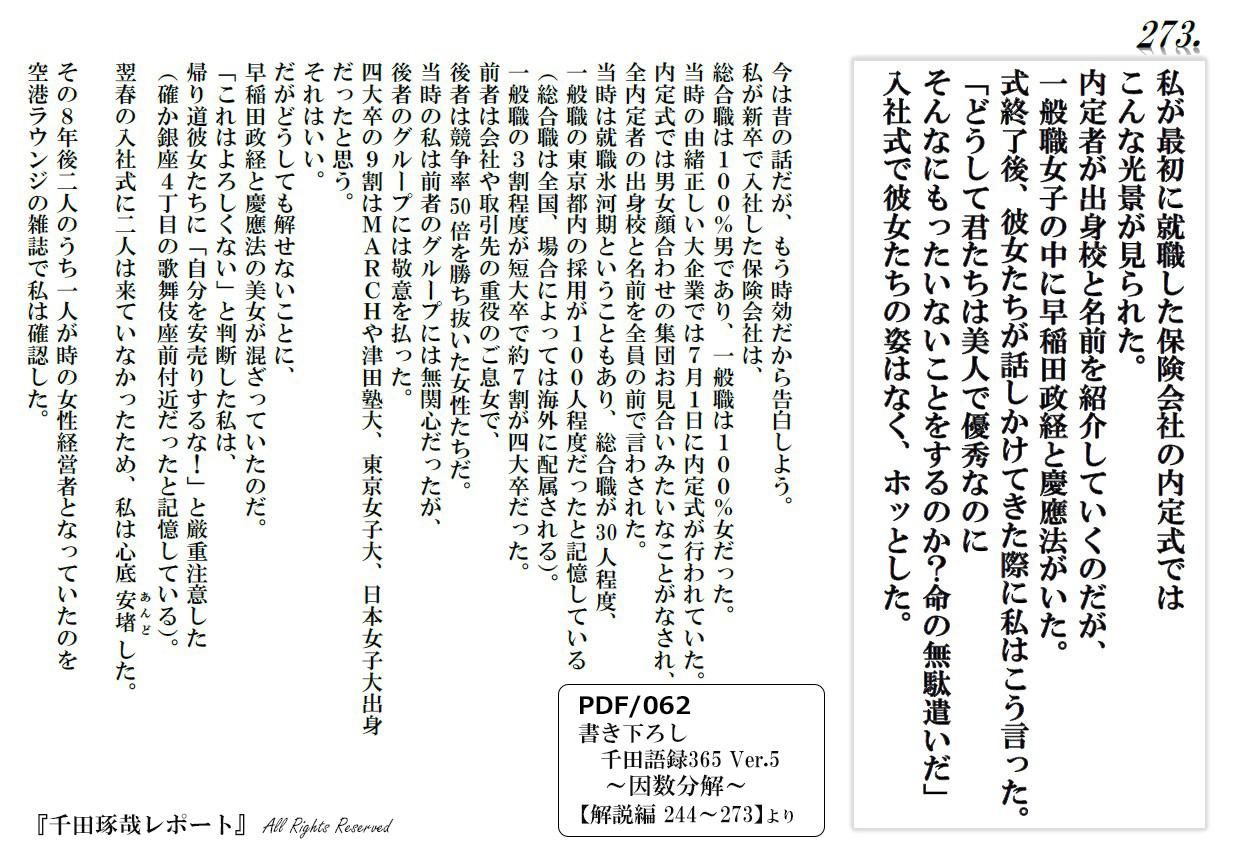 273.
私が最初に就職した保険会社の内定式では
こんな光景が見られた。
内定者が出身校と名前を紹介していくのだが、
一般職女子の中に早稲田政経と慶應法がいた。
式終了後、彼女たちが話しかけてきた際に私はこう言った。
「どうして君たちは美人で優秀なのに
そんなにもったいないことをするのか？命の無駄遣いだ」
入社式で彼女たちの姿はなく、ホッとした。
今は昔の話だが、もう時効だから告白しよう。
私が新卒で入社した保険会社は、
総合職は１００％男であり、一般職は１００％女だった。
当時の由緒正しい大企業では７月１日に内定式が行われていた。
内定式では男女顔合わせの集団お見合いみたいなことがなされ、
全内定者の出身校と名前を全員の前で言わされた。
当時は就職氷河期ということもあり、総合職が30人程度、
一般職の東京都内の採用が１００人程度だったと記憶している
（総合職は全国、場合によっては海外に配属される）。
一般職の３割程度が短大卒で約７割が四大卒だった。
前者は会社や取引先の重役のご息女で、
後者は競争率50倍を勝ち抜いた女性たちだ。
当時の私は前者のグループには無関心だったが、
後者のグループには敬意を払った。
四大卒の９割はＭＡＲＣＨや津田塾大、東京女子大、日本女子大出身
だったと思う。
それはいい。
だがどうしても解せないことに、
早稲田政経と慶應法の美女が混ざっていたのだ。
「これはよろしくない」と判断した私は、
帰り道彼女たちに「自分を安売りするな！」と厳重注意した
（確か銀座４丁目の歌舞伎座前付近だったと記憶している）。
翌春の入社式に二人は来ていなかったため、私は心底安堵した。
あんど
その８年後二人のうち一人が時の女性経営者となっていたのを
空港ラウンジの雑誌で私は確認した。
PDF/062
書き下ろし
千田語録365 Ver.5
～因数分解～
【解説編 244～273】より
『千田琢哉レポート』 All Rights Reserved